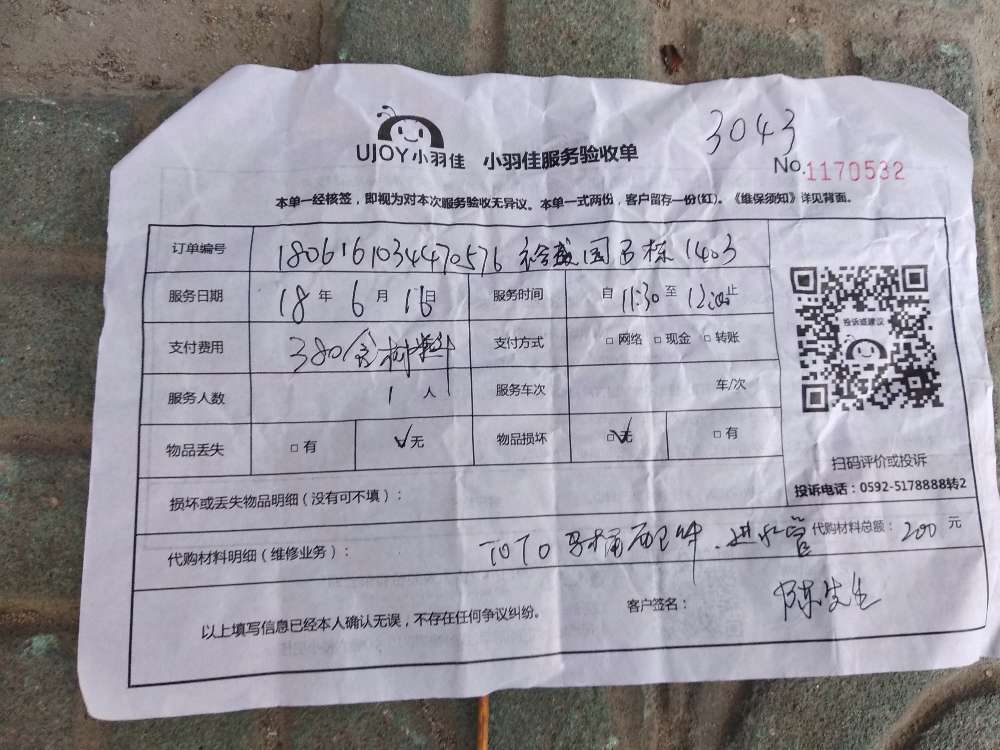 3043
UJOY小羽佳 小羽佳服务验收单
No.1170532
本单一经核签，即视为对本次服务验收无异议。本单一式两份，客户留存一份(红)。《维保须知》详见背面。
订单编号 1806161034470576 裕威园B栋1403
服务日期 18年6月16日 服务时间 自11:30至12:00止
支付费用 380含材料 支付方式 □网络 □现金 □转账
服务人数 1人 服务车次 车/次
物品丢失 □有 √无 物品损坏 □无 □有
投诉或建议
扫码评价或投诉
投诉电话：0592-5178888转2
损坏或丢失物品明细（没有可不填）：
代购材料明细（维修业务）： TOTO马桶配件.进水管 代购材料总额：200元
以上填写信息已经本人确认无误，不存在任何争议纠纷。 客户签名： 陈先生